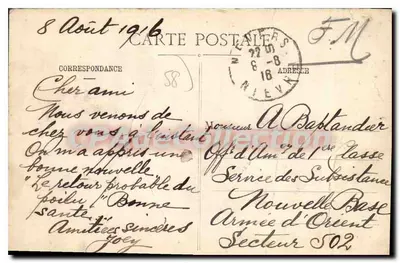 8 Août 1916
CARTE POSTALE
F.M
CORRESPONDANCE
ADRESSE
NEVERS
22 35
6 -8
16
NIEVRE
58
Cher ami
Nous venons de
chez vous à l'instant
On m'a appris une
bonne nouvelle
"Le retour probable du
poilu" Bonne
santé.
Amitiés sincères
Joey
Monsieur A Baptandier
Off. d'Adm. de 1re Classe
Service des Subsistance
Nouvelle Base
Armée d'Orient
Secteur 502